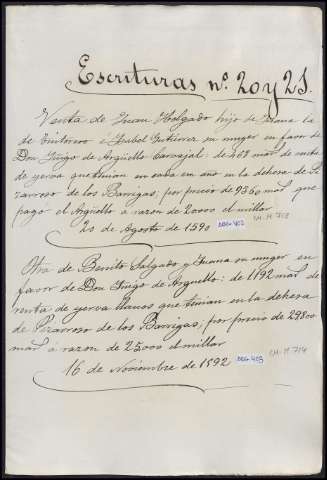 Escrituras nº. 20 y 21.
Venta de Juan Holgado hijo de Juana la
de Tintorero é Isabel Gutiérrez su muger en favor de
Don Iñigo de Argüello Carvajal: de 468 mars. de renta
de yerva que tenian en cada un año en la dehesa de Pi-
zarroso de los Barrigas, por precio de 9360 mars. que
pagó el Argüello á razon de 20000 el millar
20 de Agosto de 1590
Otra de Benito Salgado y Juana su muger en
favor de Don Iñigo de Argüello: de 1192 mars. de
renta de yerva llanos que tenian en la dehesa
de Pizarroso de los Barrigas, por precio de 29800
mars. á razon de 25000 el millar
16 de Noviembre de 1592